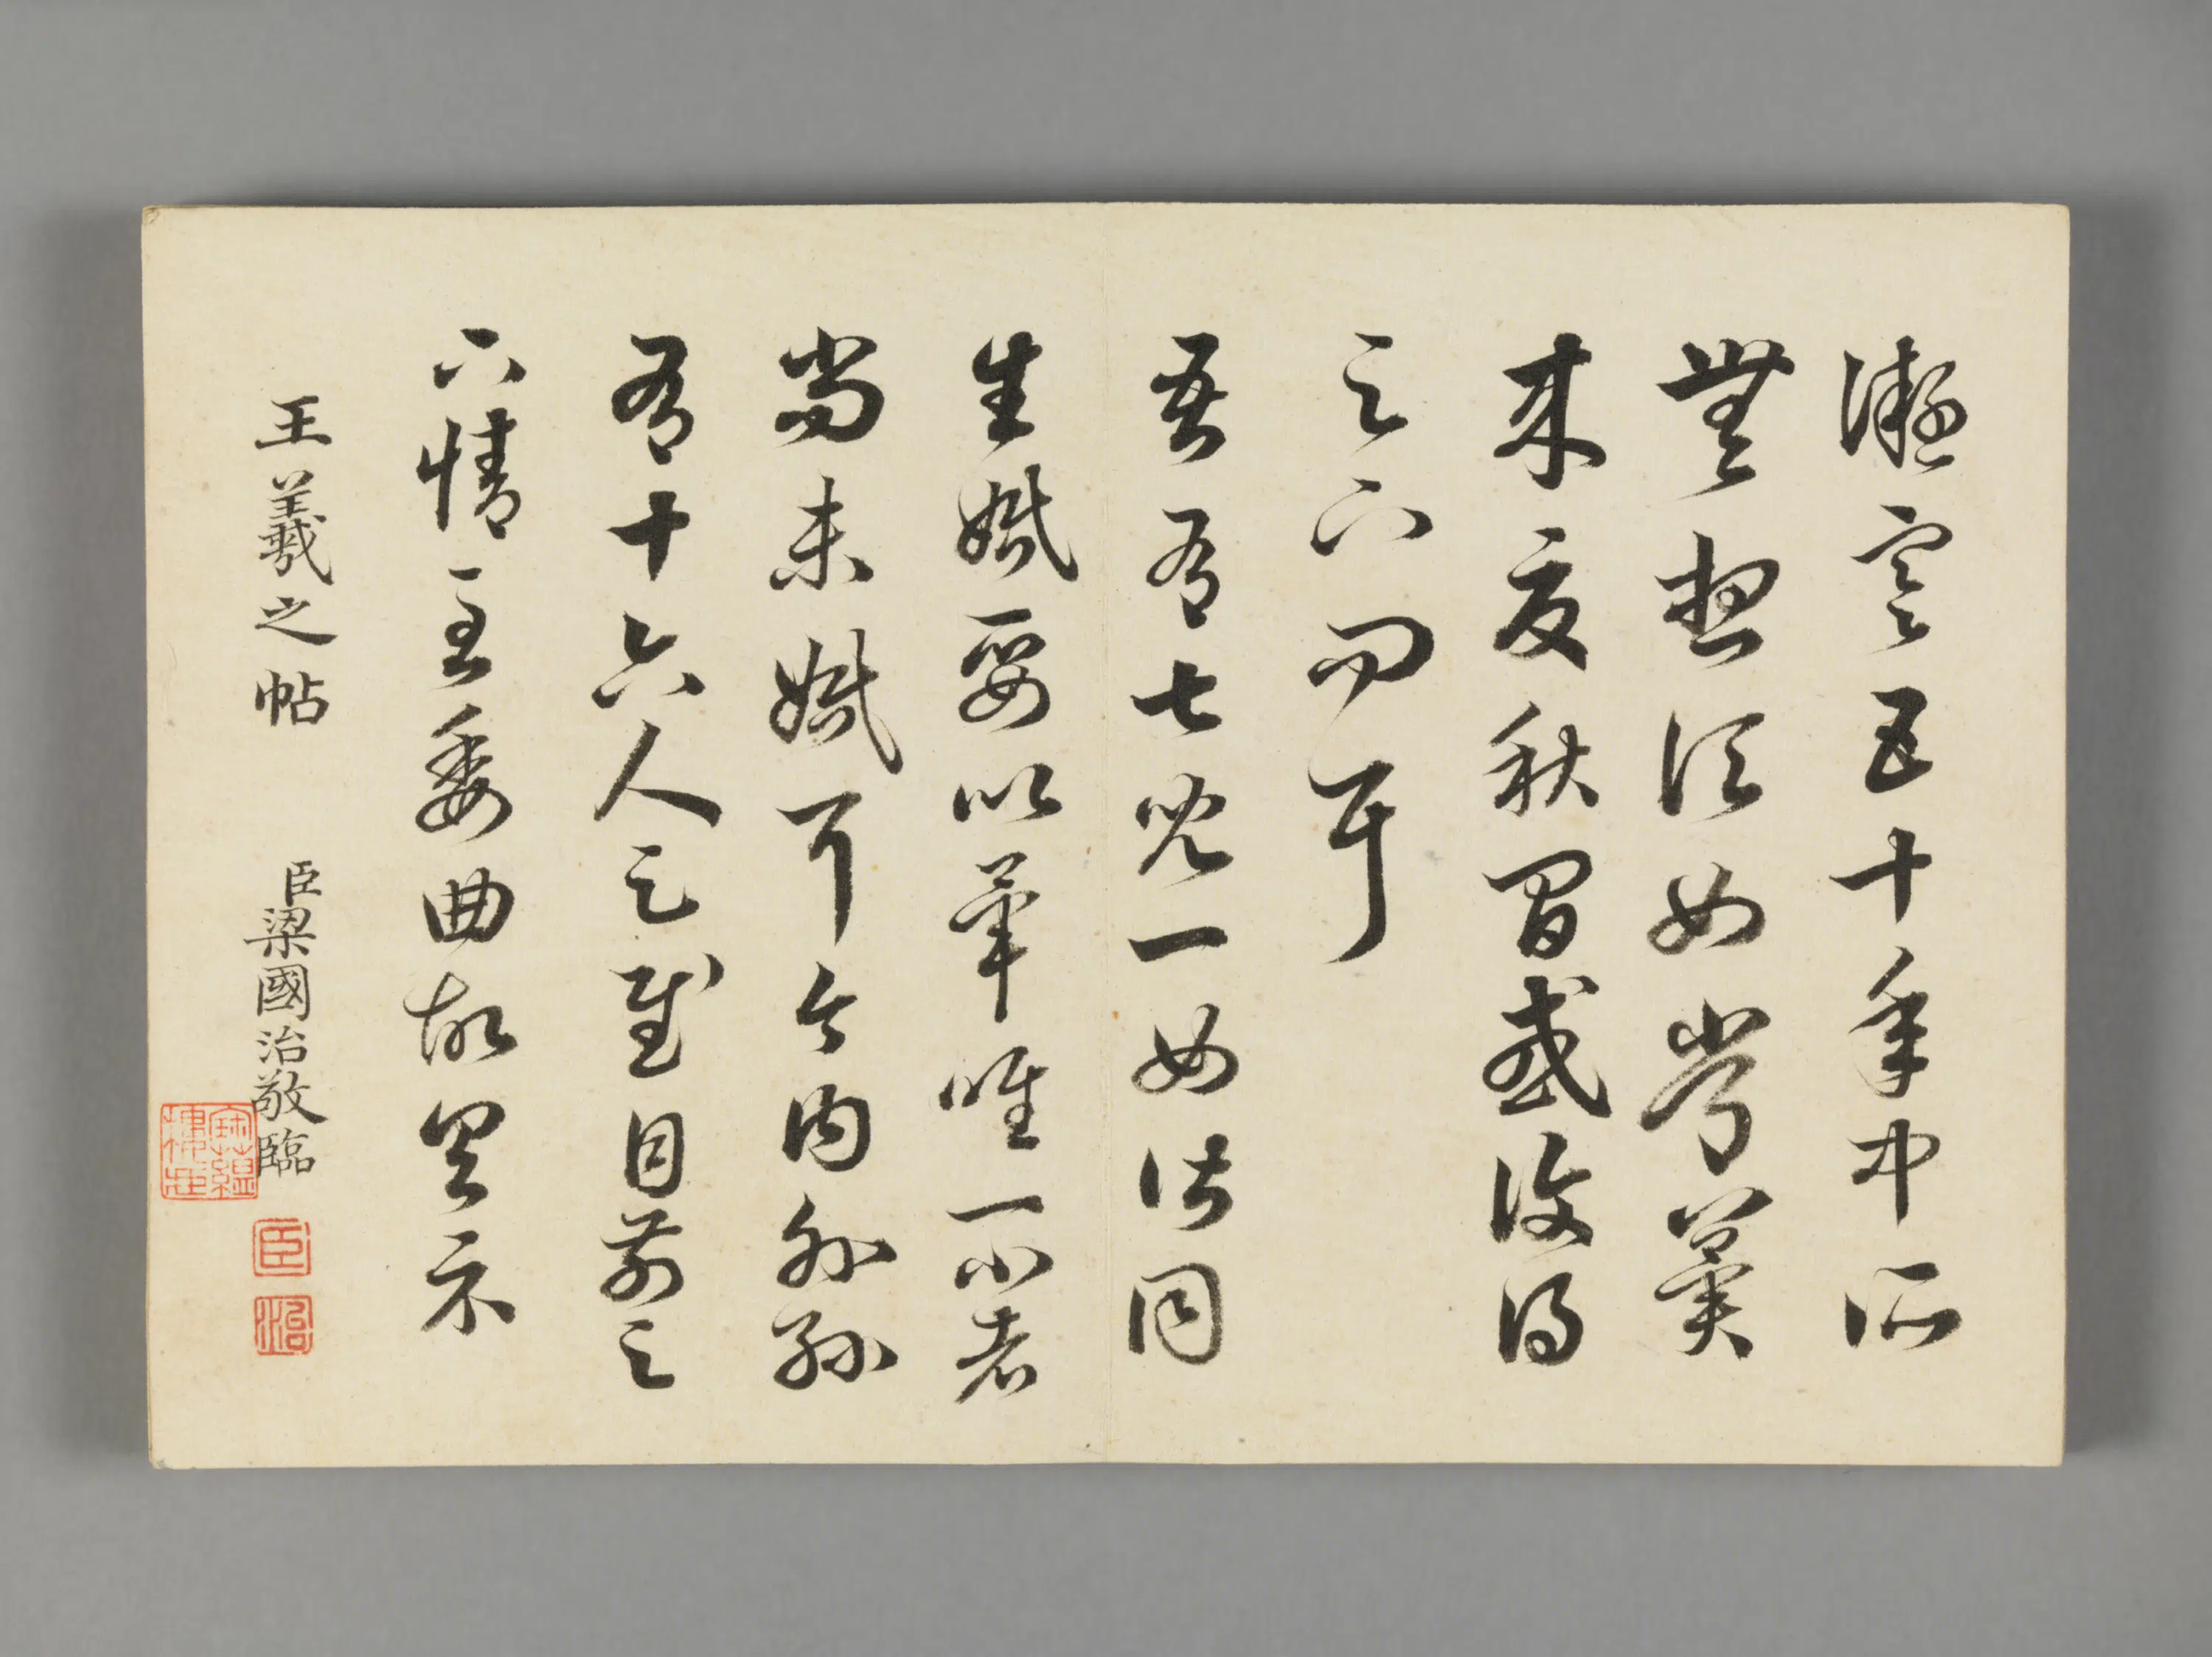 凝寒五十年中所
無想頃如常冀
來夏秋間或復得
足下問耳
吾有七兒一女皆同
生婚娶以畢唯一小者
尚未婚耳今內外孫
有十六人足慰目前足
下情至委曲故具示
王羲之帖
臣梁國治敬臨
寶蘊樓藏
臣
治